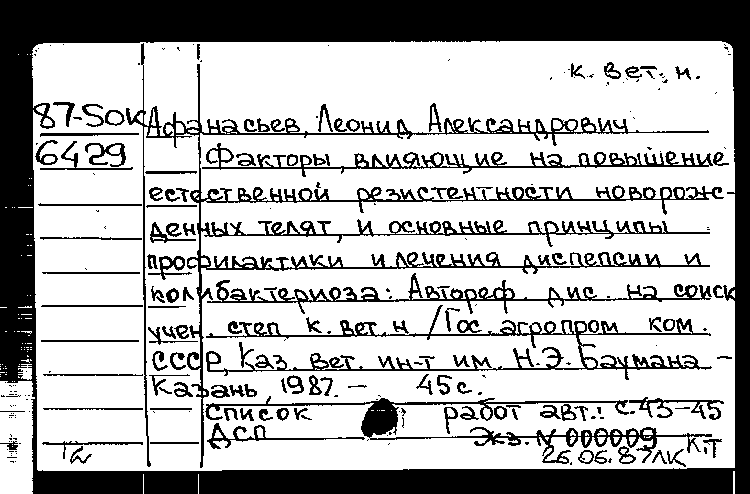 к. вет. н.
87-5ОК Афанасьев, Леонид Александрович.
6429 Факторы, влияющие на повышение
естественной резистентности новорож-
денных телят, и основные принципы
профилактики и лечения диспепсии и
колибактериоза: Автореф. дис. на соиск
учен. степ к. вет. н /Гос. агропром ком.
СССР, Каз. вет. ин-т им. Н.Э. Баумана -
Казань, 1987. - 45с.
Список работ авт.: с.43-45
ДСП Экз. N 000009 К,Т
26.06.87ЛК